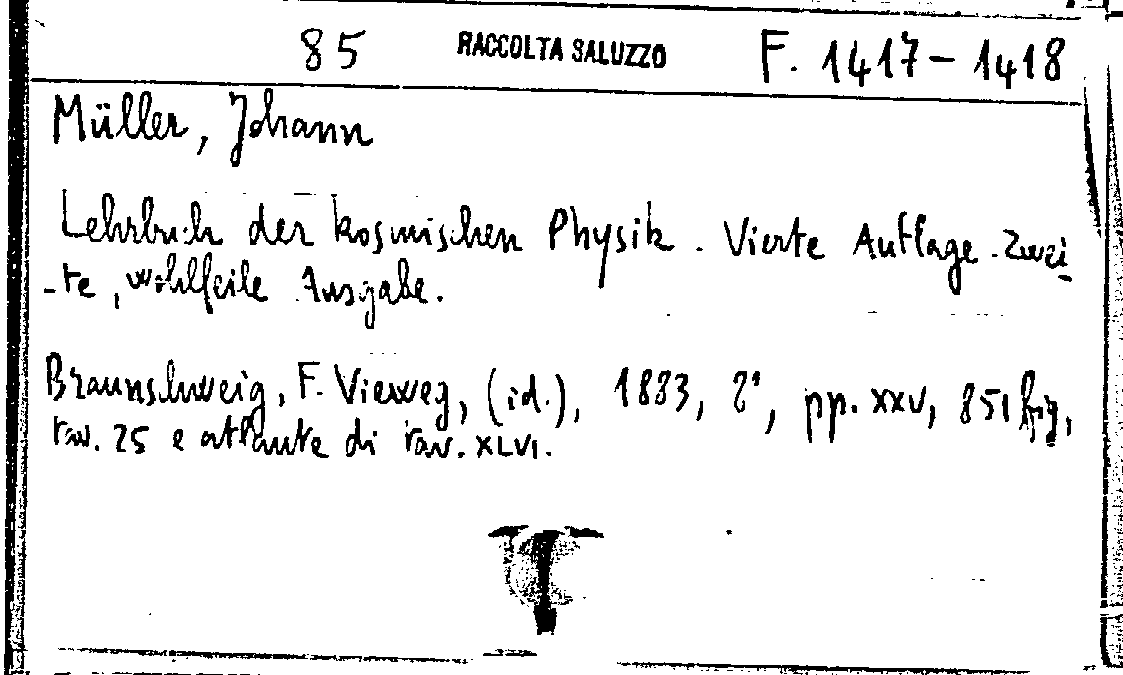 85 RACCOLTA SALUZZO F. 1417 - 1418
Müller, Johann
Lehrbuch der kosmischen Physik. Vierte Auflage. Zwei
-te, wohlfeile Ausgabe.
Braunschweig, F. Vieweg, (id.), 1883, 8°, pp. XXV, 851 fig,
tav. 25 e atlante di tav. XLVI.